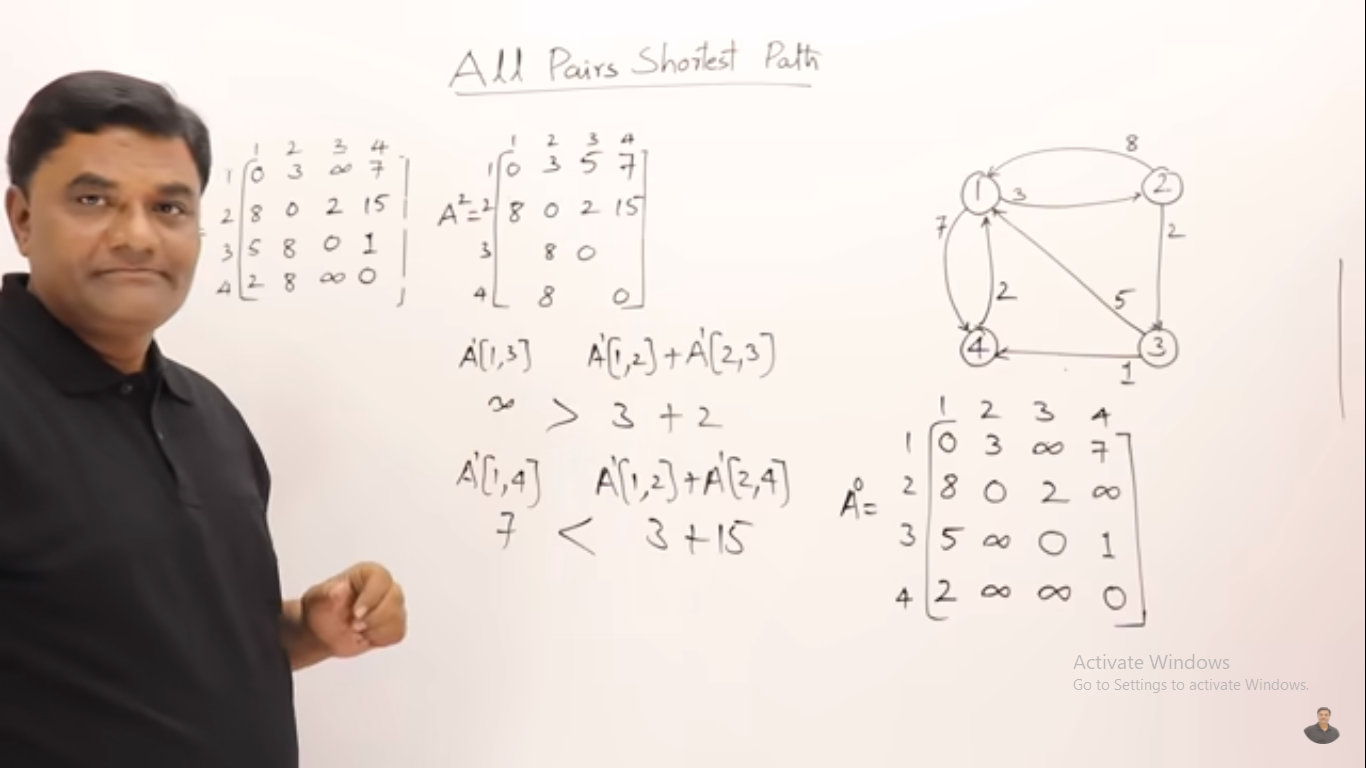 All Pairs Shortest Path
1 2 3 4
1 0 3 ∞ 7
2 8 0 2 15
3 5 8 0 1
4 2 8 ∞ 0
1 2 3 4
1 0 3 5 7
A²= 2 8 0 2 15
3 8 0
4 8 0
A¹[1,3] A¹[1,2]+A¹[2,3]
∞ > 3 + 2
A¹[1,4] A¹[1,2]+A¹[2,4]
7 < 3+15
8
1 3 2
7 2
2 5
4 3
1
1 2 3 4
1 0 3 ∞ 7
A⁰= 2 8 0 2 ∞
3 5 ∞ 0 1
4 2 ∞ ∞ 0
Activate Windows
Go to Settings to activate Windows.